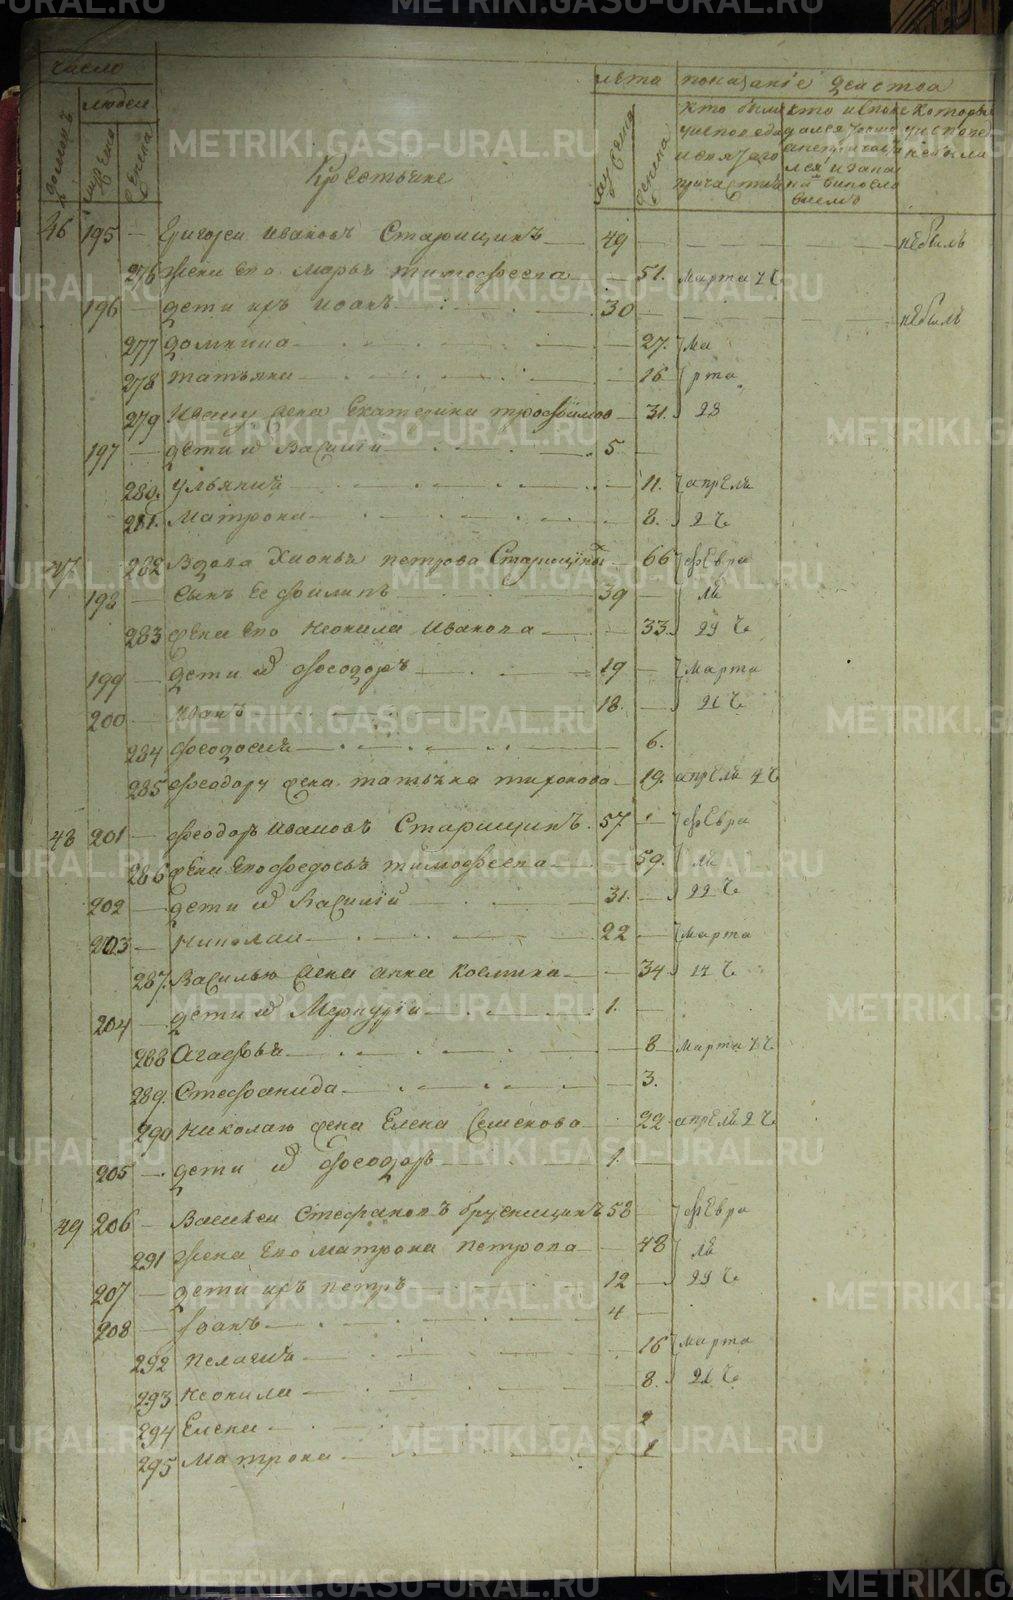 число
людей
домовъ
мужеска
женска
Крестьяне
лѣта
мужеска
женска
показаніе действа
кто были у исповеди и святаго причастия
46 195 — Григорей Ивановъ Старицинъ 49 — небылъ
276 жена его Марья Тимофеева 51. марта 4 Ч
196 — дети ихъ Иванъ 30 — небылъ
277 Домнина 27. Ма
278 Татьяна 16 рта
279 Ивану жена Екатерина Трофимова 31. 23
197 — дети и Василій 5 —
280. Ульянія 11. апреля
281. Матрона 8. 2 Ч
47 282 Вдова Хионья Петрова Старицина 66 Февра
198 — сынъ ее Филипъ 39 — ля
283 жена его Неонила Иванова 33. 29 Ч
199 — дети и Феодоръ 19 — Марта
200 — Иванъ 18. — 21 Ч
284 Феодосия 6.
285 Феодору жена Татьяна Тихонова 19. апреля 4 Ч
48 201 — Феодоръ Ивановъ Старицинъ. 57 Февра
286 жена его Федосья Тимофеева 59. ля
202 — дети и Василій 31. — 22 Ч
203 — Николай 22 — Марта
287. Василью жена Анна Космина 34 14 Ч
204 — дети и Меркурій 1. —
288 Агафья 8 Марта Ч
289. Стефанида 3.
290 Николаю жена Елена Семенова 22 апреля 2 Ч
205 — дети и Феодоръ 1. —
49 206 — Василей Стефановъ Брусницинъ 58 Февра
291 жена его Матрона Петрова 48 ля
207 — дети ихъ Петръ 12 — 29 Ч
208 — Іванъ 4 —
292 Пелагия 16 Марта
293 Неонила 8. 21 Ч
294 Елена 2
295 Матрона 1